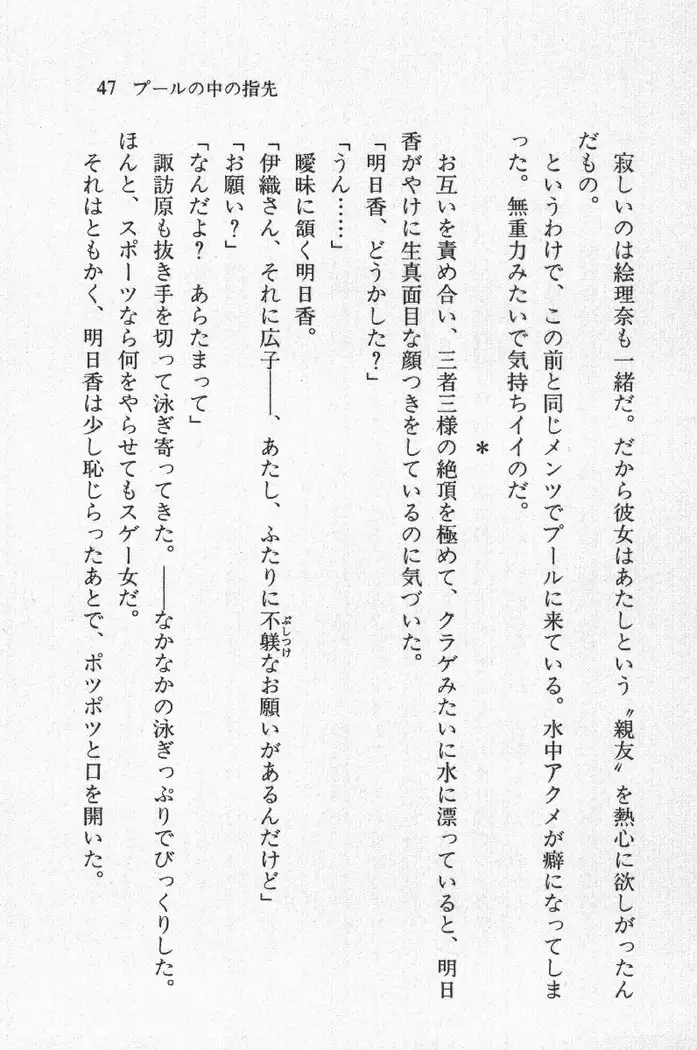 47 プールの中の指先
寂しいのは絵理奈も一緒だ。だから彼女はあたしという〝親友〟を熱心に欲しがったん
だもの。
というわけで、この前と同じメンツでプールに来ている。水中アクメが癖になってしま
った。無重力みたいで気持ちイイのだ。
*
お互いを責め合い、三者三様の絶頂を極めて、クラゲみたいに水に漂っていると、明日
香がやけに生真面目な顔つきをしているのに気づいた。
「明日香、どうかした?」
「うん……」
曖昧に頷く明日香。
「伊織さん、それに広子――、あたし、ふたりに不躾なお願いがあるんだけど」
ぶしつけ
「お願い?」
「なんだよ? あらたまって」
諏訪原も抜き手を切って泳ぎ寄ってきた。――なかなかの泳ぎっぷりでびっくりした。
ほんと、スポーツなら何をやらせてもスゲー女だ。
それはともかく、明日香は少し恥じらったあとで、ポツポツと口を開いた。